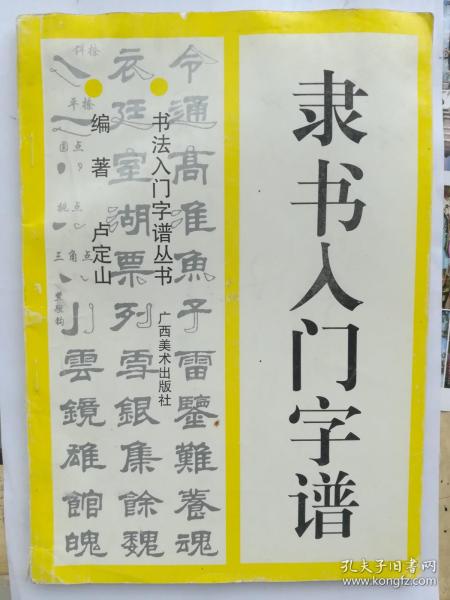 隶书入门字谱
书法入门字谱丛书
广西美术出版社
编著 卢定山
令通高准魚子雷鑒難養魂
衣廷室湖票列雪銀集餘魏
斜捺
平捺
圆点
挑点
三角点
雲鏡雄館魄
孔夫子旧书网
www.kongfz.com